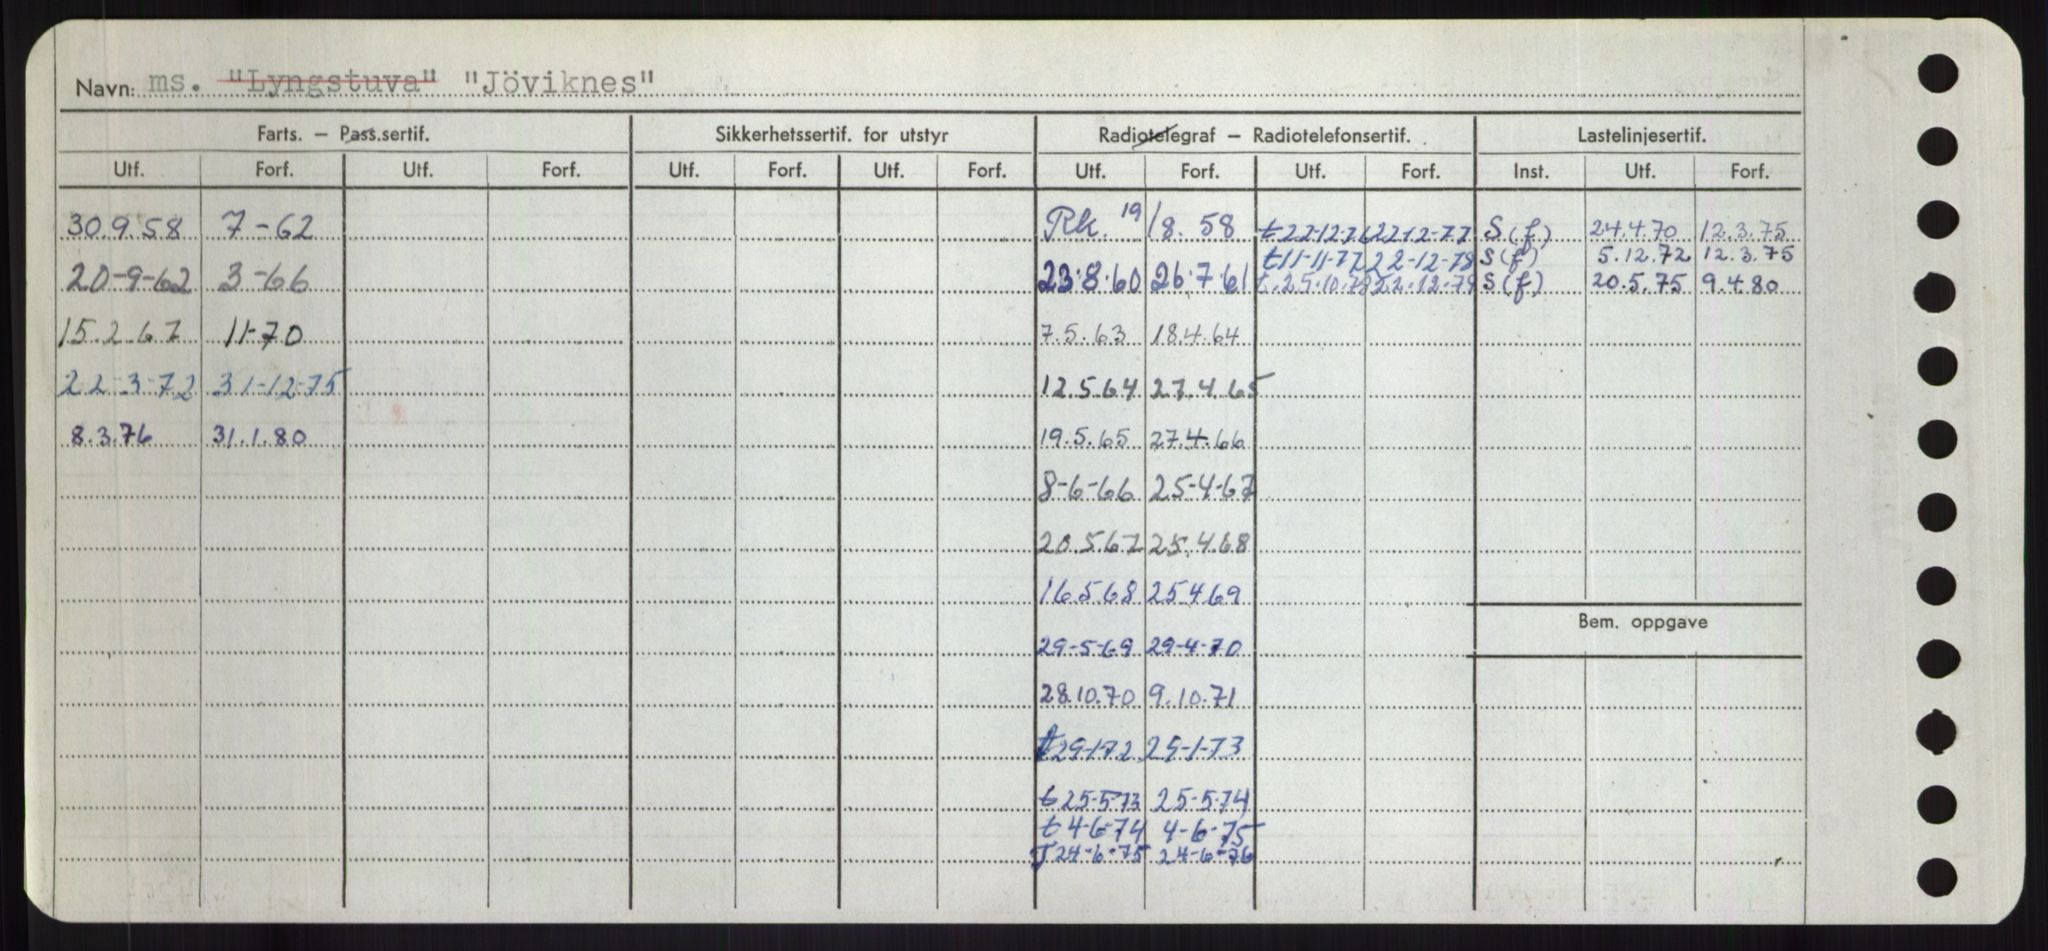 Navn: ms. "Lyngstuva" "Jöviknes"
Farts. — Pass.sertif. Sikkerhetssertif. for utstyr Radiotelegraf — Radiotelefonsertif. Lastelinjesertif.
Utf. Forf. Utf. Forf. Utf. Forf. Utf. Forf. Utf. Forf. Utf. Forf. Inst. Utf. Forf.
30.9.58 7-62 Rk. 19/8. 58 t22-12-76 22-12-77 S(f) 24.4.70 12.3.75
t11-11-77 22-12-78 S(f) 5.12.72 12.3.75
20-9-62 3-66 23.8.60 26.7.61 t.25.10.78 22.12.79 S(f) 20.5.75 9.4.80
15.2.67 11-70 7.5.63 18.4.64
22-3-72 31-12-75 12.5.64 27.4.65
8.3.76 31.1.80 19.5.65 27.4.66
8-6-66 25-4-67
20.5.67 25.4.68
16.5.68 25.4.69
29-5-69 29-4-70
Bem. oppgave
28.10.70 9.10.71
t29-1-72 29-1-73
t25-5-73 25-5-74
t4-6-74 4-6-75
T24-6-75 24-6-76